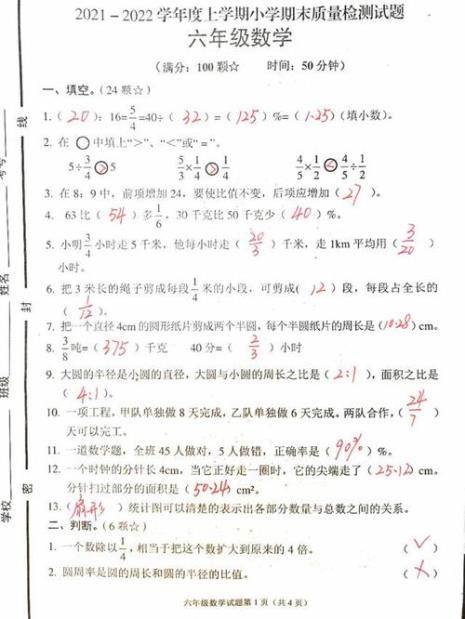 2021－2022学年度上学期小学期末质量检测试题
六年级数学
（满分：100颗☆ 时间：50分钟）
一、填空。（24颗☆）
1.（20）：16=5/4=40÷（32）=（125）%=（1.25）（填小数）。
2. 在 ○ 中填上“>”、“<”或“=”。
5÷3/4 > 5 5/3×1/4 > 1/4 4/5×1/2 < 4/5÷1/2
3. 在 8：9 中，前项增加 24，要使比值不变，后项应增加（27）。
4. 63 比（54）多 1/6，30 千克比 50 千克少（40）%。
5. 小明 3/4 小时走 5 千米，他每小时走（20/3）千米，走 1km 平均用（3/20）
小时。
6. 把 3 米长的绳子剪成每段 1/4 米的小段，可剪成（12）段，每段占全长的
（1/12）。
7. 把一个直径 4cm 的圆形纸片剪成两个半圆，每个半圆纸片的周长是（10.28）cm。
8. 3/8 吨=（375）千克 40 分=（2/3）小时
9. 大圆的半径是小圆的直径，大圆与小圆的周长之比是（2:1），面积之比是
（4:1）。
10. 一项工程，甲队单独做 8 天完成，乙队单独做 6 天完成。两队合作，（24/7）
天可以完工。
11. 一道数学题，全班 45 人做对，5 人做错，正确率是（90%）%。
12. 一个时钟的分针长 4cm，当它正好走一圈时，它的尖端走了（25.12）cm，
分针扫过部分的面积是（50.24）cm²。
13.（扇形）统计图可以清楚的表示出各部分数量与总数之间的关系。
二、判断。（6颗☆）
1. 一个数除以 1/4，相当于把这个数扩大到原来的 4 倍。 （√）
2. 圆周率是圆的周长和圆的半径的比值。 （×）
六年级数学试题第 1 页（共 4 页）
线
姓名
封
班级
密
学校